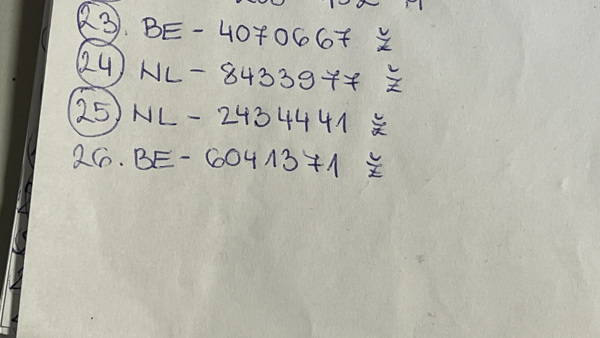 23. BE - 4070667 ž
24 NL - 8433977 ž
25 NL - 2434441 ž
26. BE - 6041371 ž